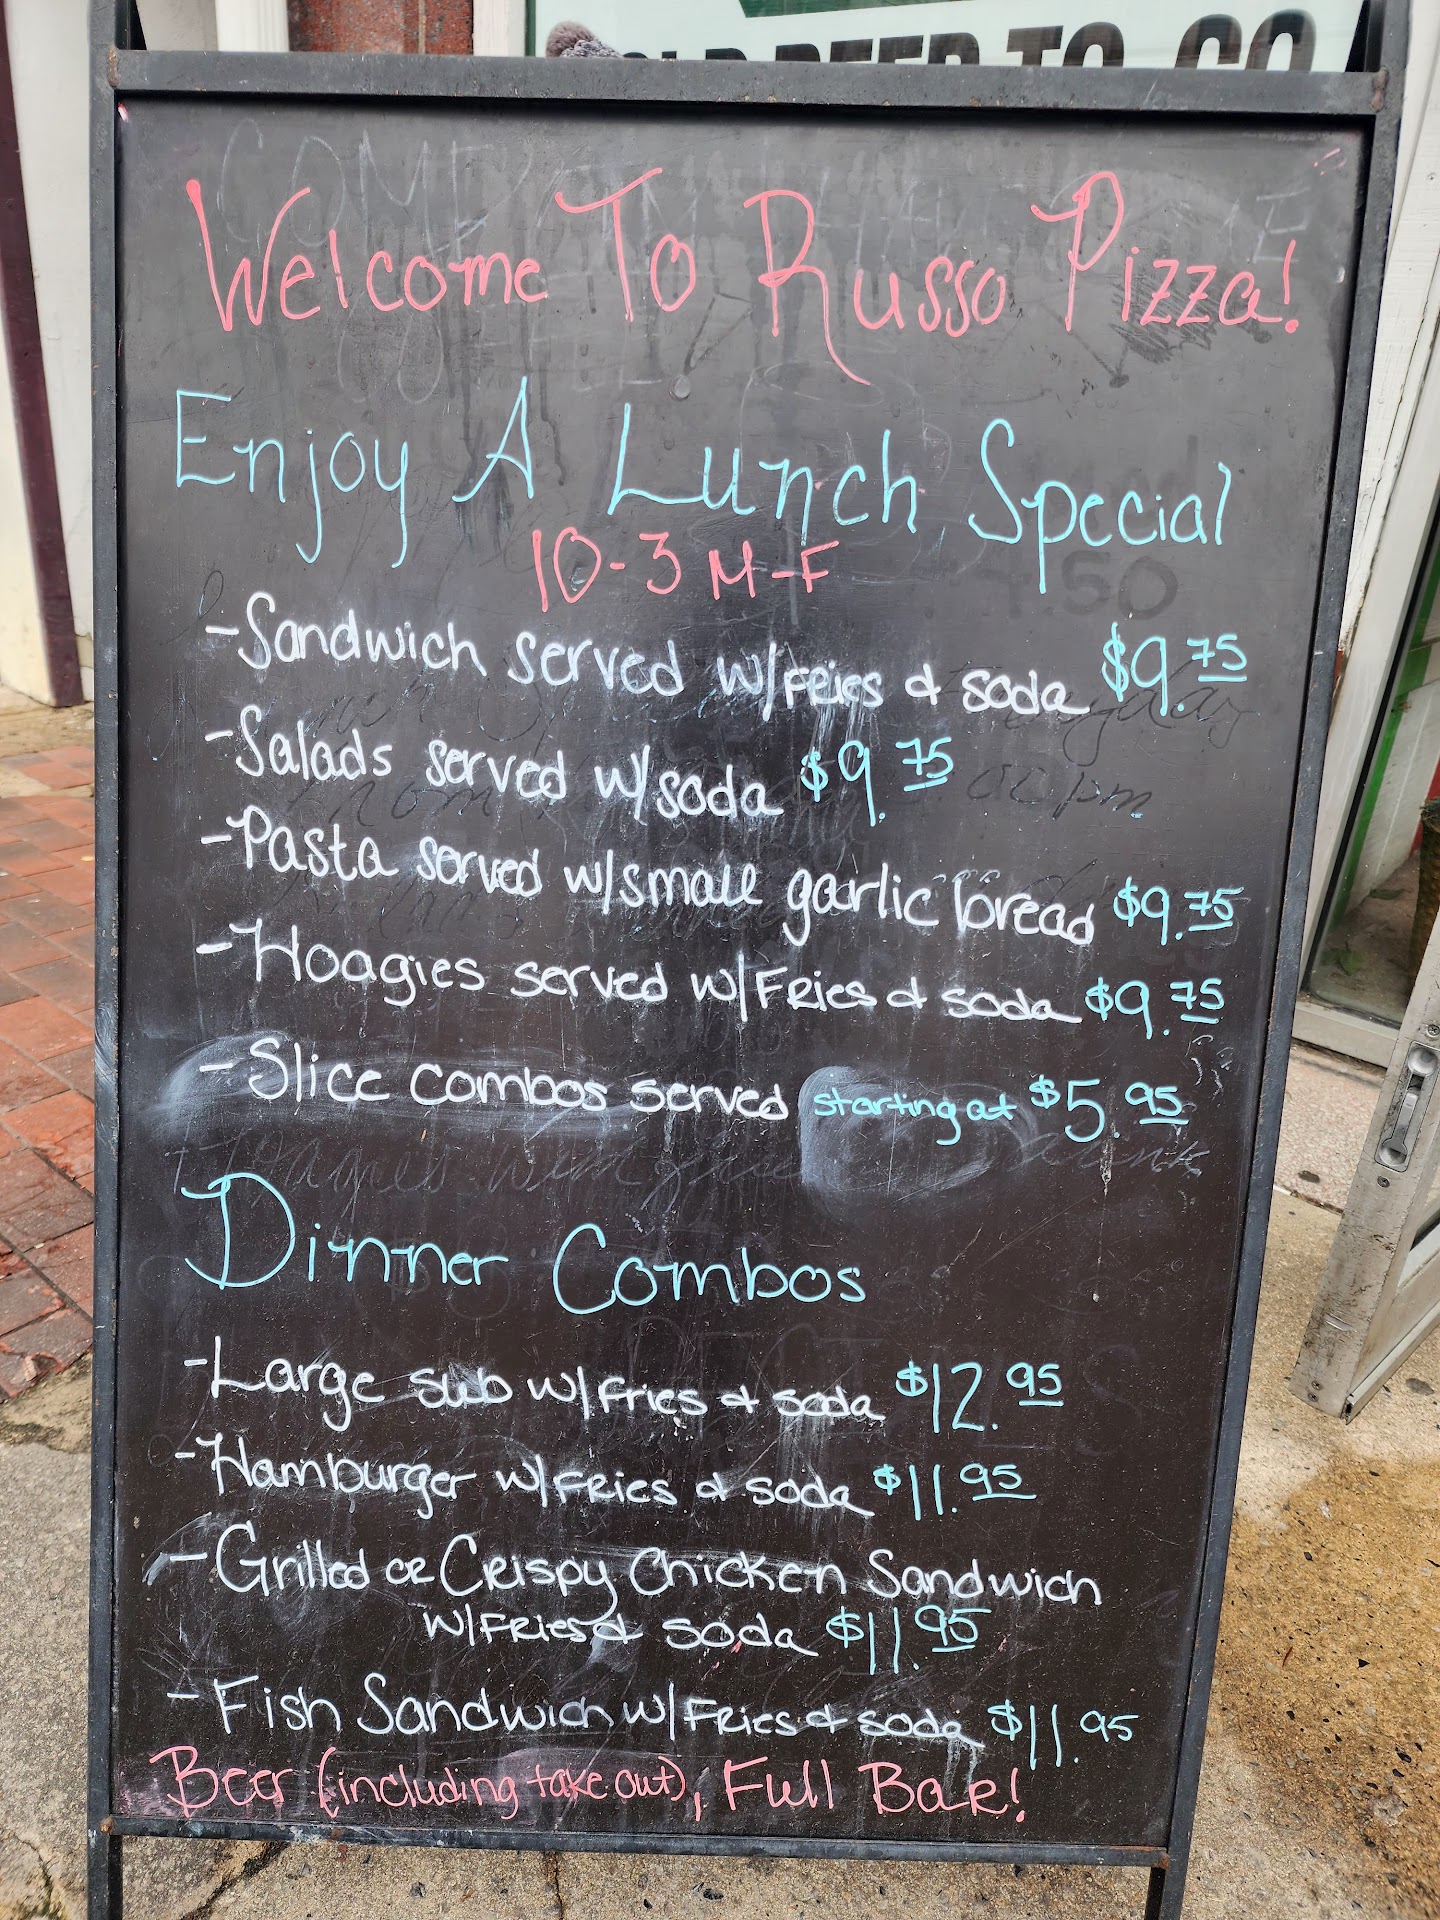 BEER TO GO
Welcome To Russo Pizza!
Enjoy A Lunch Special
10-3 M-F
-Sandwich served w/Fries & soda $9.75
-Salads served w/soda $9.75
-Pasta served w/small garlic bread $9.75
-Hoagies served w/Fries & soda $9.75
-Slice combos served starting at $5.95
Dinner Combos
-Large sub w/Fries & soda $12.95
-Hamburger w/Fries & soda $11.95
-Grilled or Crispy Chicken Sandwich
w/Fries & soda $11.95
-Fish Sandwich w/Fries & soda $11.95
Beer (including take out), Full Bar!